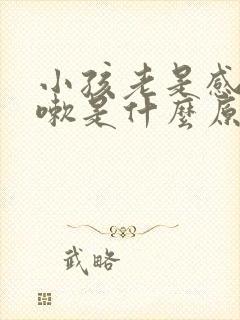 小孩老是感
嗽是什麼原
武略